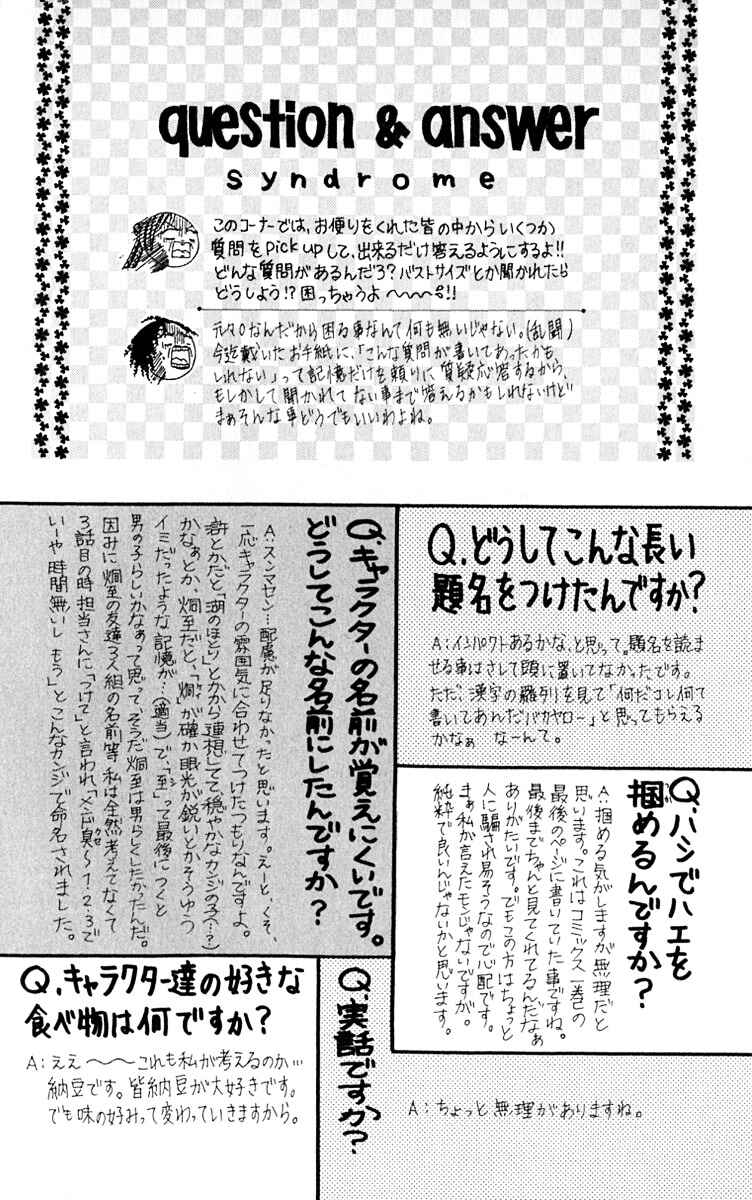 question & answer
syndrome
このコーナーでは、お便りをくれた皆の中からいくつか
質問をpick upして、出来るだけ答えるようにするよ!!
どんな質問があるんだろ?バストサイズとか聞かれたら
どうしよう!?困っちゃうよ〜〜〜!!
なんだから困る事なんて何も無いじゃない。(乱闘)
今迄戴いたお手紙に、「こんな質問が書いてあったかも
しれない」って記憶だけを頼りに質疑応答するから、
もしかして聞かれてない事まで答えるかもしれないけど
まぁそんな事どうでもいいわよね。
Q.どうしてこんな長い
題名をつけたんですか?
A:インパクトあるかな、と思って。題名を読ま
せる事はさして頭に置いてなかったです。
ただ、漢字の羅列を見て「何だコレ何て
書いてあんだバカヤロー」と思ってもらえる
かなぁ なーんて。
Q.キャラクターの名前が覚えにくいです。
どうしてこんな名前にしたんですか?
A:スンマセン…配慮が足りなかったと思います。えーと、くそ、
一応キャラクターの雰囲気に合わせてつけたつもりなんですよ。
滸とかだと「湖のほとり」とかから連想してて、穏やかなカンジの子、…?
かなぁとか、炯至だと、「炯」が確か眼光が鋭いとかそうゆう
イミだったような記憶が…(適当)で、「至」って最後につくと
男の子らしいかなぁって思って、そうだ炯至は男らしくしたかったんだ。
因みに炯至の友達3人組の名前等 私は全然考えてなくて
3話目の時担当さんに「つけて」と言われ、「メンド臭〜1・2・3で
いーや 時間無いし もう」とこんなカンジで命名されました。
Q.ハシでハエを
掴めるんですか?
A:掴める気がしますが無理だと
思います。これはコミックス一巻の
最後のページに書いていた事ですね。
最後までちゃんと見てくれてるんだなぁ
ありがたいです。でもこの方はちょっと
人に騙され易そうなので心配です。
まぁ私が言えたモンじゃないですが。
純粋で良いんじゃないかと思います。
Q.キャラクター達の好きな
食べ物は何ですか?
A:ええ〜〜〜これも私が考えるのか…
納豆です。皆納豆が大好きです。
でも味の好みって変わっていきますから。
Q.実話ですか?
A:ちょっと無理がありますね。